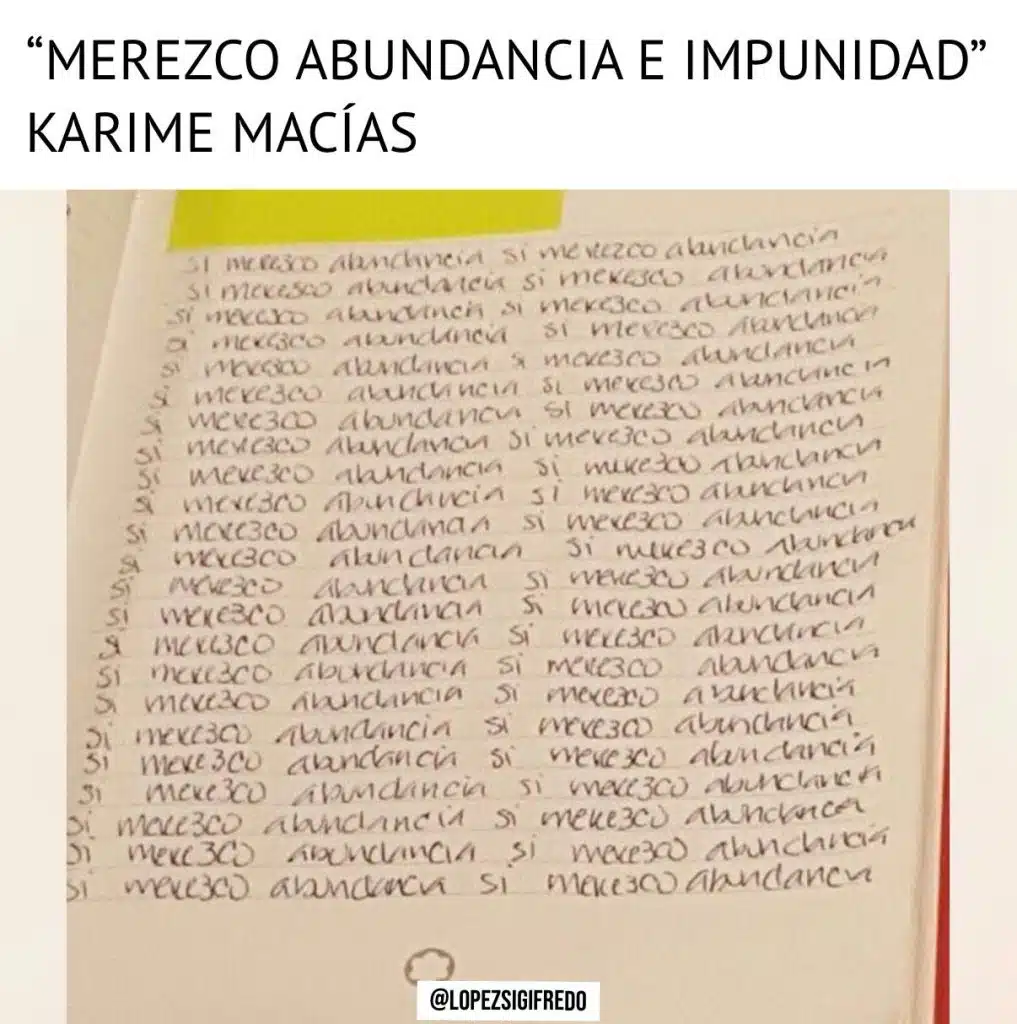 “MEREZCO ABUNDANCIA E IMPUNIDAD”
KARIME MACÍAS
si merezco abundancia si merezco abundancia
si merezco abundancia si merezco abundancia
si merezco abundancia si merezco abundancia
si merezco abundancia si merezco abundancia
si merezco abundancia si merezco abundancia
si merezco abundancia si merezco abundancia
si merezco abundancia si merezco abundancia
si merezco abundancia si merezco abundancia
si merezco abundancia si merezco abundancia
si merezco abundancia si merezco abundancia
si merezco abundancia si merezco abundancia
si merezco abundancia si merezco abundancia
si merezco abundancia si merezco abundancia
si merezco abundancia si merezco abundancia
si merezco abundancia si merezco abundancia
si merezco abundancia si merezco abundancia
si merezco abundancia si merezco abundancia
si merezco abundancia si merezco abundancia
si merezco abundancia si merezco abundancia
si merezco abundancia si merezco abundancia
si merezco abundancia si merezco abundancia
si merezco abundancia si merezco abundancia
si merezco abundancia si merezco abundancia
@LOPEZSIGIFREDO